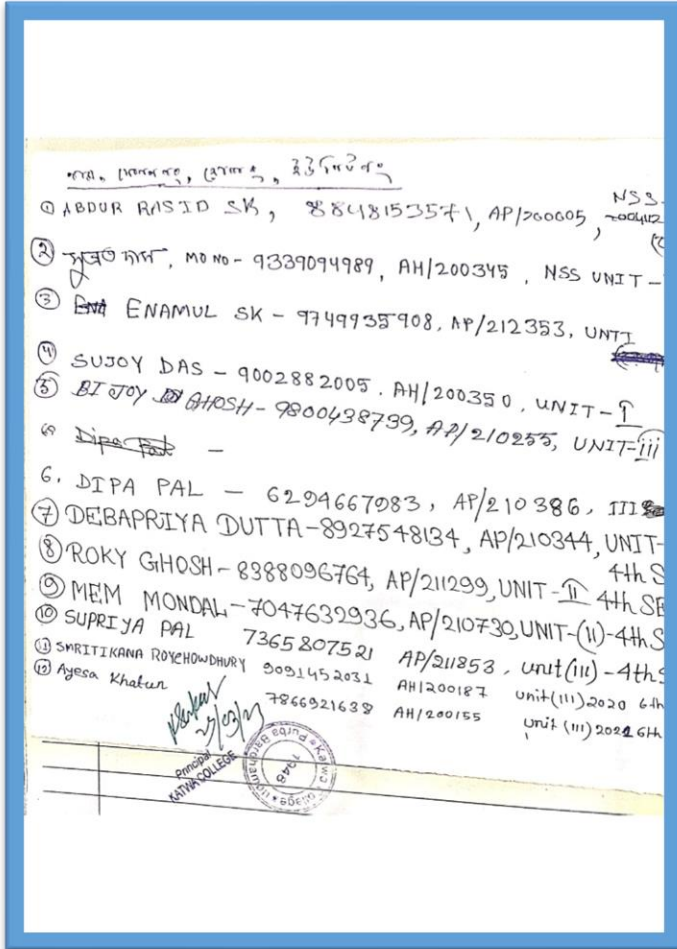 নাম, মোবাইল নং, রোল নং, ইউনিট নং
① ABDUR RASID SK, 8848153571, AP/200605, NSS-
② সুব্রত দাস, MO NO- 9339094989, AH/200345, NSS UNIT-
③ ENAMUL SK - 9749935908, AP/212353, UNTI
④ SUJOY DAS - 9002882005. AH/200350, UNIT-I
⑤ BIJOY GHOSH- 9800438799, AP/210255, UNIT-iii
Dipa Pal -
6. DIPA PAL - 6294667083, AP/210386, III
⑦ DEBAPRIYA DUTTA-8927548134, AP/210344, UNIT-
⑧ ROKY GHOSH-8388096764, AP/211299, UNIT-II 4th S
⑨ MEM MONDAL-7047632936, AP/210730, UNIT-(II)-4th SE
⑩ SUPRIYA PAL 7365807521 AP/211853, unit(iii)-4th S
⑪ SMRITIKANA ROYCHOWDHURY 9091452031 AH/200187 unit(III)2020 6th
⑫ Ayesa Khatun 7866921638 AH/200155 Unit (III) 2021 6th
27/03/23
Principal
KATWA COLLEGE
1948